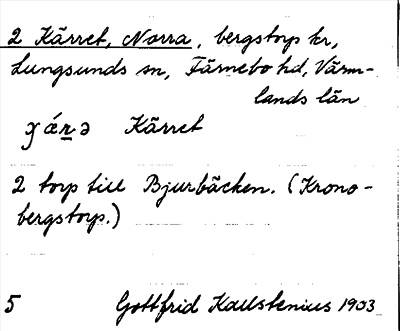 2 Kärret, Norra, bergstorp kr,
Lungsunds sn, Färnebo hd, Värm-
lands län
Kärret
2 torp till Bjurbäcken. (Krono-
bergstorp.)
5 Gottfrid Kallstenius 1903